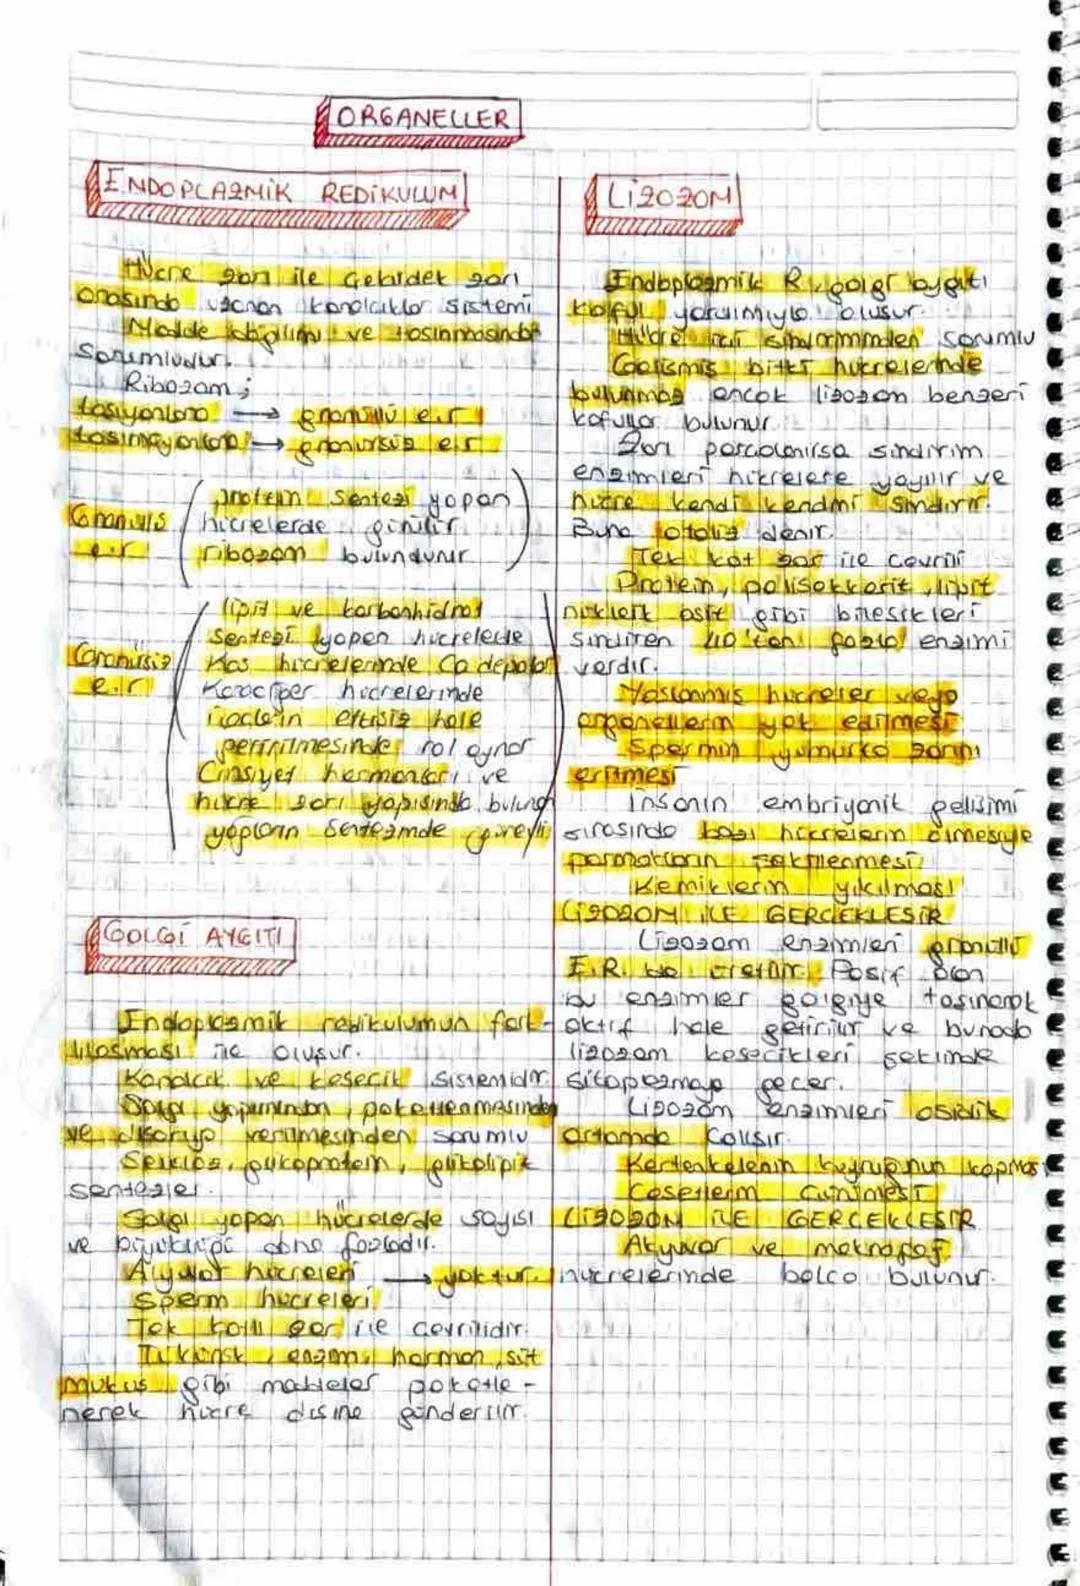 ORGANELLER
ENDOPLAZMİK REDİKULUM
Hücre zarı ile Çekirdek zarı
arasında uzanan kanalcıklar sistemi
Madde dağılımı ve taşınmasında
sorumludur.
Ribozom;
taşıyanlara → granüllü e.r
taşımayanlara → granürsüz e.r
Granüllü
e.r
protein sentezi yapan
hücrelerde görülür
ribozom bulundurur
Granürsüz
e.r
lipit ve karbonhidrat
sentezi yapan hücrelerde
Kas hücrelerinde Ca depolar
Karaciğer hücrelerinde
ilaçların etkisiz hale
getirilmesinde rol oynar
Cinsiyet hormonları ve
hücre zarı yapısında bulunan
yağların sentezinde görevli
GOLGİ AYGITI
Endoplazmik redikulumun fark-
lılaşması ile oluşur.
Kanalcık ve kesecik sistemidir.
Salgı yapımından, paketlenmesinden
ve dışarıya verilmesinden sorumlu
Selüloz, glikoprotein, glikolipit
sentezler.
Salgı yapan hücrelerde sayısı
ve büyüklüğü daha fazladır.
Alyuvar hücreleri → yoktur.
Sperm hücreleri
Tek katlı zar ile çevrilidir.
Tükürük, enzim, hormon, süt
mukus gibi maddeler paketle-
nerek hücre dışına gönderilir.
LİZOZOM
Endoplazmik R, golgi aygıtı
koful yardımıyla oluşur.
Hücre içi sindirimden sorumlu
Gelişmiş bitki hücrelerinde
bulunmaz ancak lizozom benzeri
kofullar bulunur.
Zarı parçalanırsa sindirim
enzimleri hücrelere yayılır ve
hücre kendi kendini sindirir.
Buna otoliz denir.
Tek kat zar ile çevrili
Protein, polisakkarit, lipit
nükleik asit gibi bileşikleri
sindiren 40'tan fazla enzimi
vardır.
Yaşlanmış hücreler veya
organellerin yok edilmesi
Spermin yumurta zarını
eritmesi
İnsanın embriyonik gelişimi
sırasında bazı hücrelerin ölmesiyle
parmakların şekillenmesi
Kemiklerin yıkılması
LİZOZOM İLE GERÇEKLEŞİR
Lizozom enzimleri granüllü
E.R. de üretilir. Pasif olan
bu enzimler golgiye taşınarak
aktif hale getirilir ve burada
lizozom kesecikleri şekinde
sitoplazmaya geçer.
Lizozom enzimleri asidik
ortamda çalışır.
Kertenkelenin kuyruğunun kopması
Cesetlerin çürümesi
LİZOZOM İLE GERÇEKLEŞİR
Akyuvar ve makrofaj
hücrelerinde bolca bulunur.